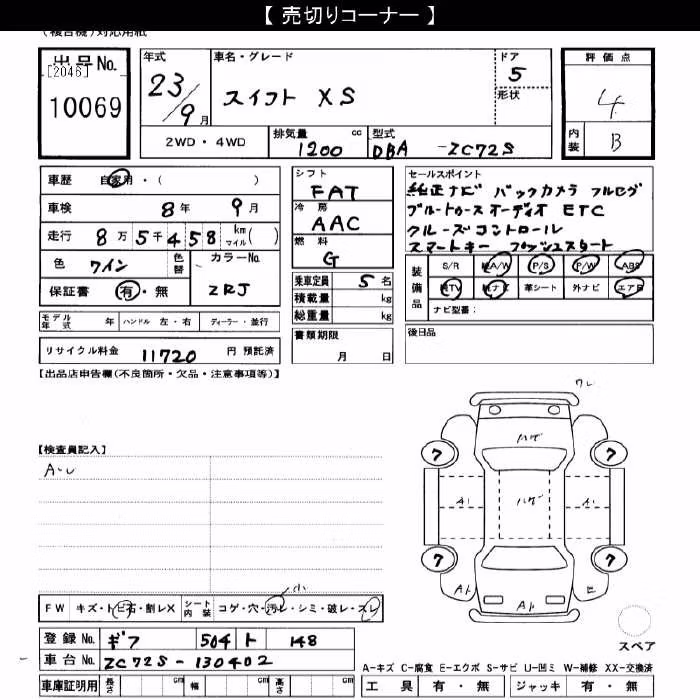 【 売切りコーナー 】
(複合機)対応用紙
出品No.
[2046]
10069
年式
23/9月
車名・グレード
スイフト XS
ドア
5
形状
評価点
4
内装 B
2WD・4WD
排気量 cc
1200
型式
DBA -ZC72S
車歴 自家用・( )
車検 8年 9月
走行 8万5千458 km マイル( )
色 ワイン 色替
カラーNo.
ZRJ
保証書 有・無
シフト
FAT
冷房
AAC
燃料
G
乗車定員 5名
積載量 kg
総重量 kg
セールスポイント
純正ナビ バックカメラ フルセグ
ブルートゥースオーディオ ETC
クルーズコントロール
スマートキー プッシュスタート
装備品
S/R A/W P/S P/W ABS
TV ナビ 革シート 外ナビ エアB
ナビ型番:
モデル年式 年 ハンドル 左・右 ディーラー・並行
リサイクル料金 11720 円 預託済
書類期限
月 日
後日品
【出品店申告欄(不良箇所・欠品・注意事項等)】
【検査員記入】
7 7
7 7
FW キズ・トビ石・割レX シート内装 コゲ・穴・汚レ・シミ・破レ・スレ
小
登録No. ギフ 504 ト 148
車台No. ZC72S-130402
車庫証明用 長さ cm 幅 cm 高さ cm
スペア
A-キズ C-腐食 E-エクボ S-サビ U-凹ミ W-補修 XX-交換済
工具 有・無 ジャッキ 有・無